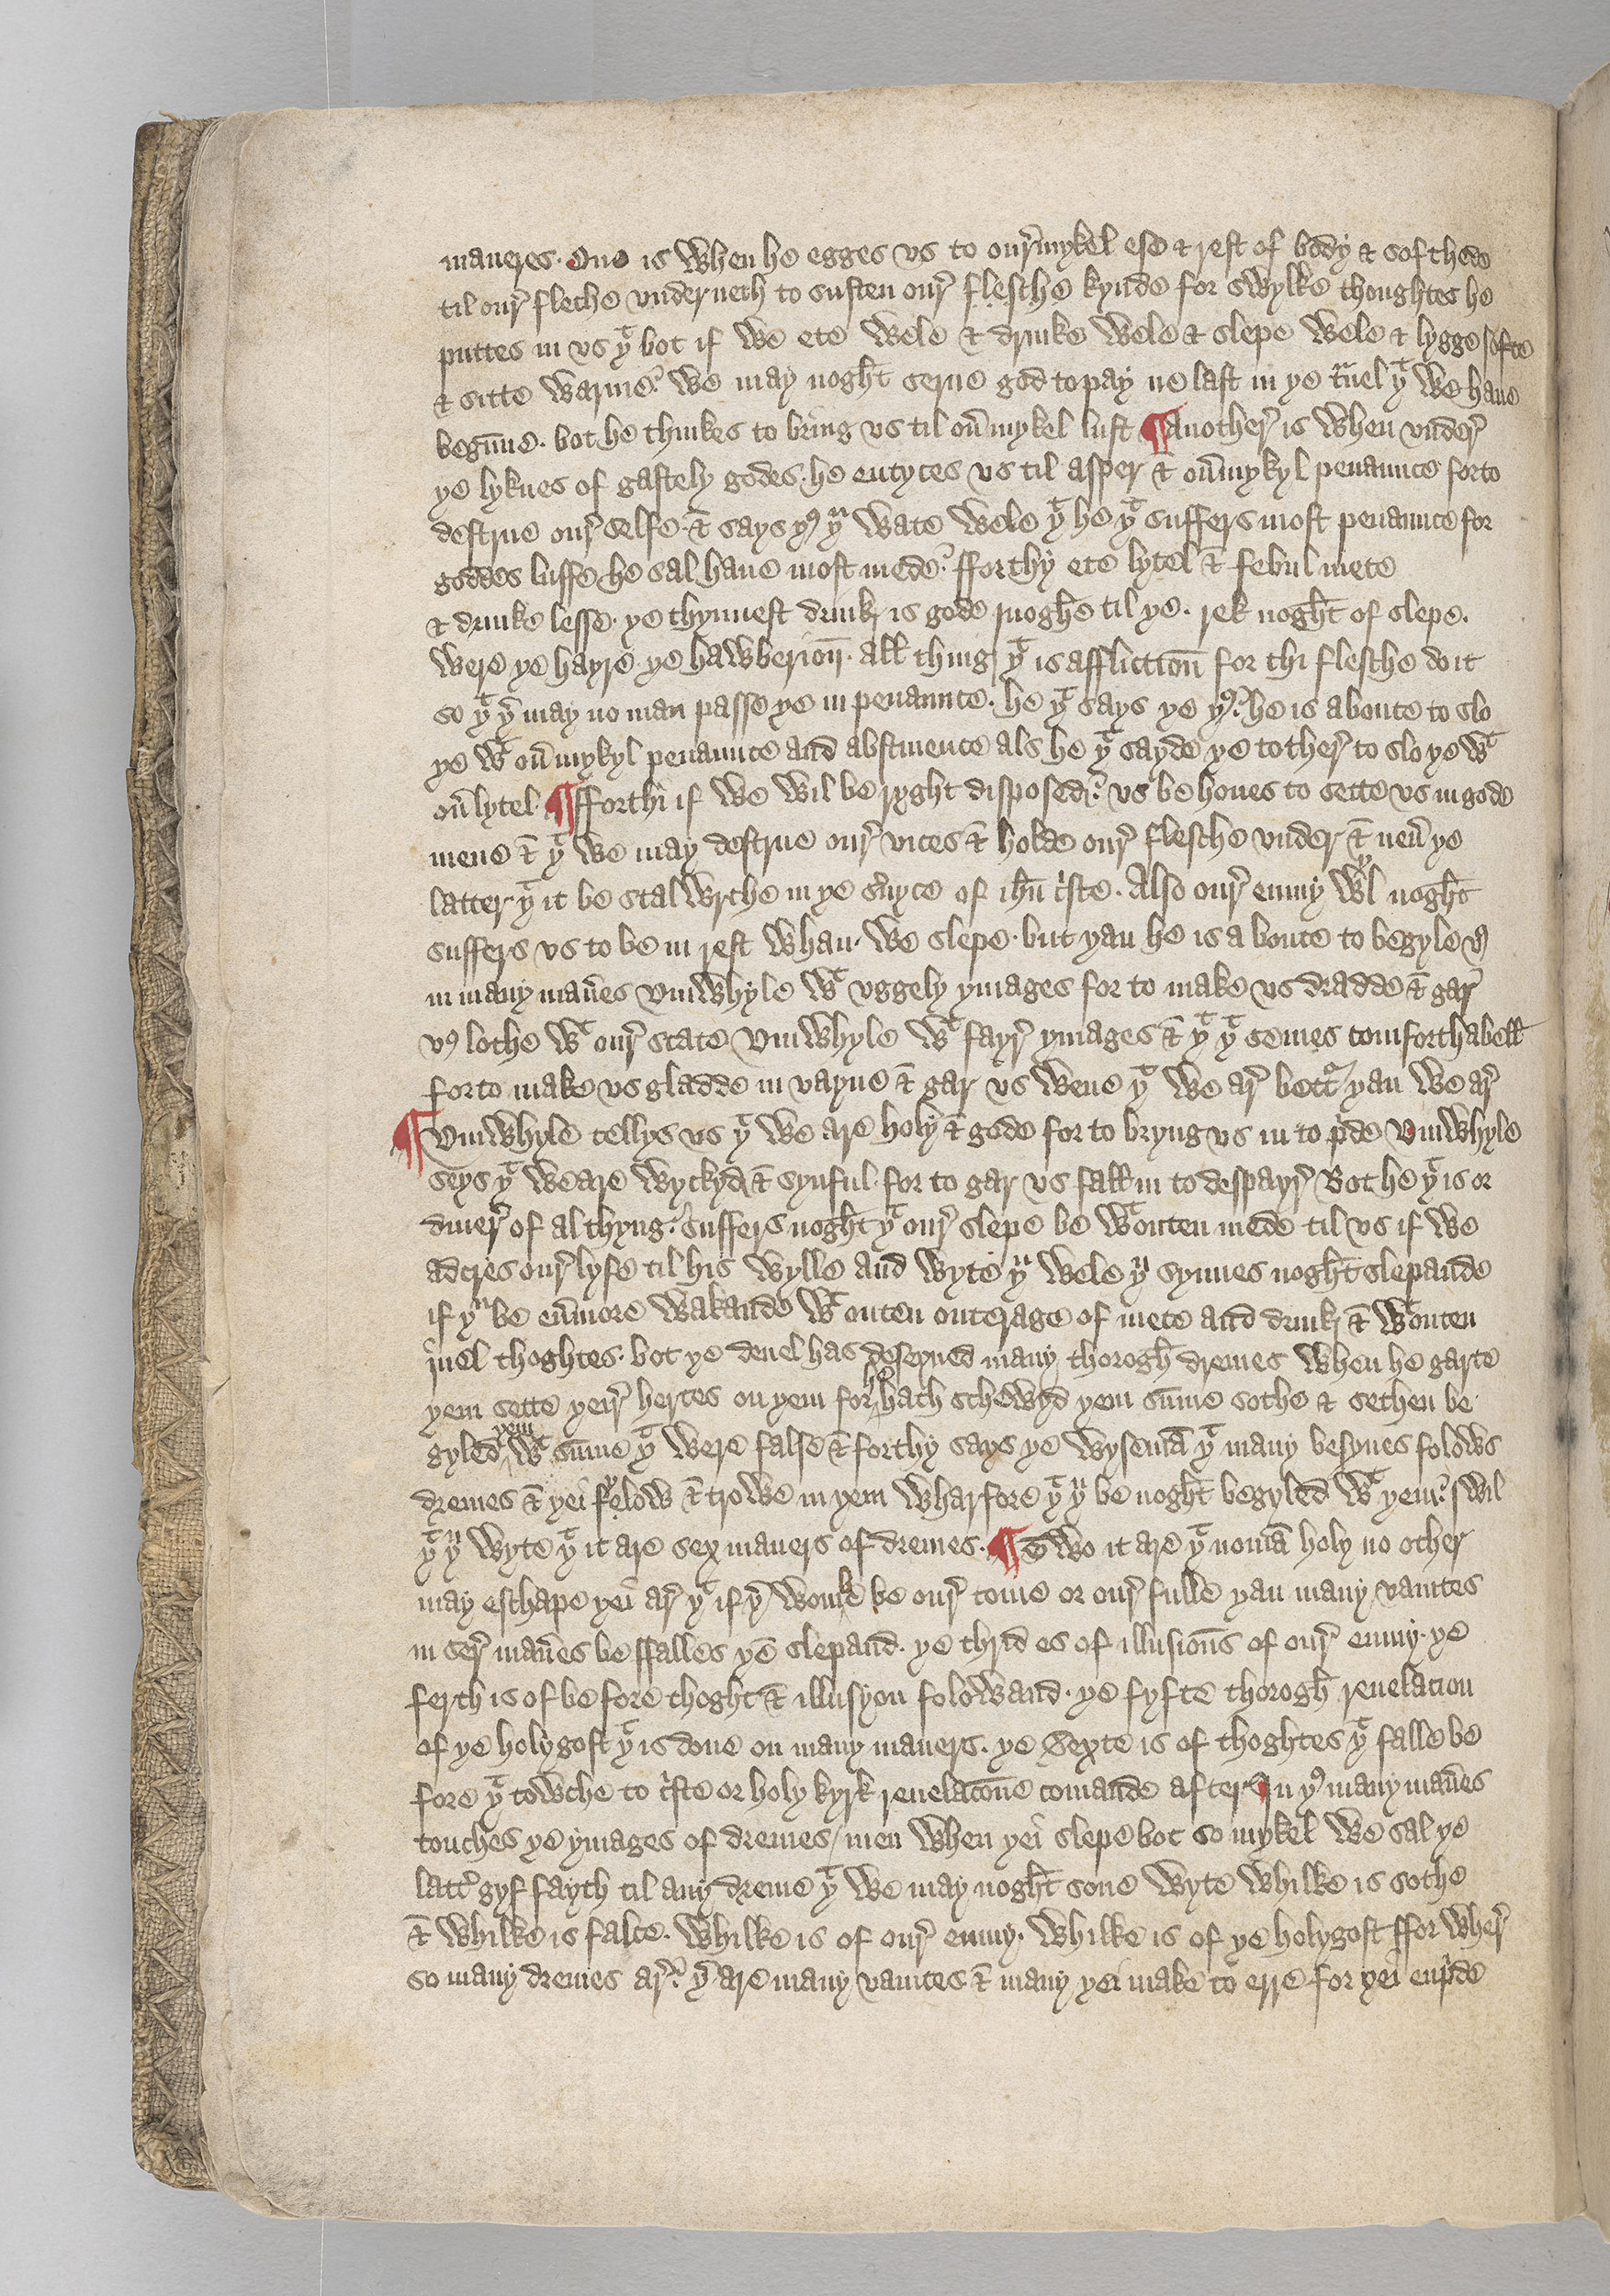 maneres. One is when he egges vs to ouꝛ̉mykel ese & rest of body & softhede
til ouꝛ̉ fleche vnderneth to susten ouꝛ̉ flesche kynde for swylke thoughtes he
puttes in vs yͭ bot if we ete wele & drinke wele & slepe wele & lygge softe
& sitte warme. we may noght serue god to pay ne last in ye t̃uel yͭ we haue
begūne. bot he thinkes to bring vs til ou̾mykel lust ¶ anotheꝛ̉ is when vndeꝛ̉
ye lyknes of gastely godes. he entyces vs til asper & ou̾mykyl penaunce forto
destrue ouꝛ̉ selfe. & says yꝰ yᵘ wate wele yͭ he yͭ suffers most penaunce for
goddes luffe he sal haue most mede. fforthy ete lytel & febul mete
& drinke lesse. ye thynnest drink is gode inoghe til ye. rek noght of slepe.
were ye hayre. ye hawberion̄. all thing yͭ is affliction̄ for thi flesche do it
so yͭ yͬ may no man passe ye in penaunce. he yͭ says ye yꝰ. he is aboute to slo
ye wͭ ou̾mykyl penaunce and abstinence als he yͭ sayde ye totheꝛ̉ to slo ye wͭ
ou̾lytel. ¶ fforthi if we wil be ryght disposed. vs be houes to sette vs in gode
mene & yͭ we may destrue ouꝛ̉ vices & holde ouꝛ̉ flesche vnder & neu̾ ye
latter yͭ it be stalwrthe in ye s̾uyce of ihū c̾ste. Also ouꝛ̉ enmy wyl noght
suffers vs to be in rest whan we slepe. but yan he is a boute to begyle vꝰ
in many man̾es vmwhyle wͭ vggely ymages for to make vs dradde & gar
vꝰ lothe wͭ ouꝛ̉ state vmwhyle wͭ fayꝛ̉ ymages & yͭ yͭ semes comforthabell
forto make vs gladde in vayne & gar vs wene yͭ we aꝛ̉ bett̾ yan we aꝛ̉
¶ Vmwhyle tellys vs yͭ we are holy & gode for to bryng vs in to p̾de vmwhyle
seys yͭ we are wyckyd & synful. for to gar vs fall in to despayꝛ̉ Bot he yͭ is or
dineꝛ̉ of al thyng. suffers noght yͭ ouꝛ̉ slepe be wͭouten mede til vs if we
adcres ouꝛ̉ lyfe til his wylle and wyte yᵘ wele yᵘ synnes noght slepande
if yᵘ be eu̾more wakande wͭ outen outerage of mete and drink & wͭouten
iuel thoghtes. bot ye deuel has deseyued many thorogh dremes when he garte
yem sette yeiꝛ̉ hertes on yem for he hath schewyd yem sūme sothe & sethen be
gyled yem wͭ sūme yͭ were false & forthy says ye wysemā yͭ many besynes folows
dremes & yei felow & trowe in yem wharfore yͭ yᵘ be noght begyled wͭ yem. I wil
yͭ yᵘ wyte yͭ it are sex maners of dremes. ¶ Two it are yͭ nomā holy no other
may eschape yei aꝛ̉ yͭ if yͬ wombe be ouꝛ̉ tome or ouꝛ̉ fulle yan many vanites
in seꝛ̉ man̾es be ffalles yē slepand. ye thrid es of illusion̄s of ouꝛ̉ enmy. ye
ferth is of be fore thoght & illusyon folowand. ye fyfte thorogh reuelacion
of ye holygost yͭ is done on many maners. ye sexte is of thoghtes yͭ falle be
fore yͭ towche to c̾ste or holy kyrk reuelacōne comande after In yꝰ many man̾es
touches ye ymages of dremes men when yei slepe bot so mykel we sal ye
latt̾ gyf fayth til any dreme yͭ we may noght sone wyte whilke is sothe
& whilke is falce. whilke is of ouꝛ̉ enmy. whilke is of ye holygost ffor wheꝛ̉
so many dremes aꝛ̉. yͬ are many vanites & many yei make to erre for yei enp̾de